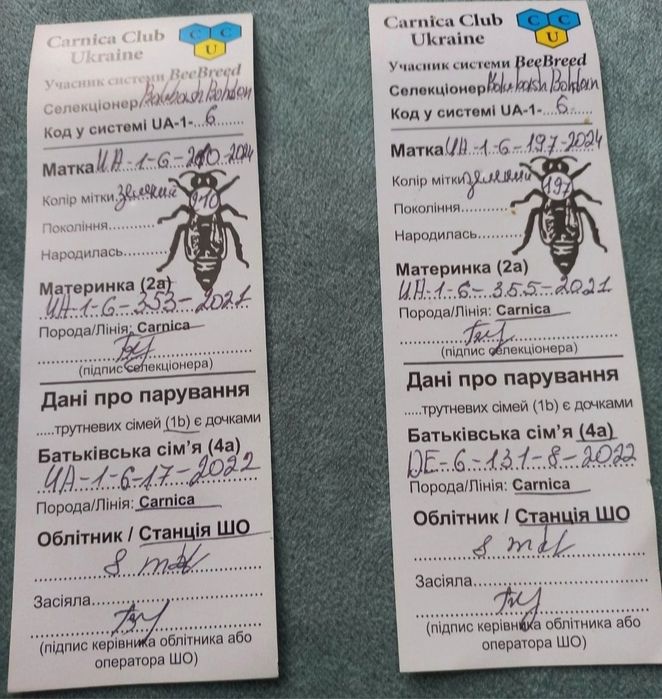 Carnica Club
Ukraine
C C U
Учасник системи BeeBreed
Селекціонер Bolebash Bohdan
Код у системі UA-1-...6......
Матка UA-1-6-210-2024
Колір мітки зелений
210
Покоління............
Народилась............
Материнка (2a)
UA-1-6-353-2021
Порода/Лінія: Carnica
(підпис селекціонера)
Дані про парування
.....трутневих сімей (1b) є дочками
Батьківська сім’я (4a)
UA-1-6-17-2022
Порода/Лінія: Carnica
Облітник / Станція ШО
8 mdl
Засіяла
(підпис керівника облітника або
оператора ШО)
Carnica Club
Ukraine
C C U
Учасник системи BeeBreed
Селекціонер Bolebash Bohdan
Код у системі UA-1-...6......
Матка UA-1-6-197-2024
Колір мітки зелений
197
Покоління............
Народилась............
Материнка (2a)
UA-1-6-355-2021
Порода/Лінія: Carnica
(підпис селекціонера)
Дані про парування
.....трутневих сімей (1b) є дочками
Батьківська сім’я (4a)
DE-6-131-8-2022
Порода/Лінія: Carnica
Облітник / Станція ШО
8 mdl
Засіяла
(підпис керівника облітника або
оператора ШО)